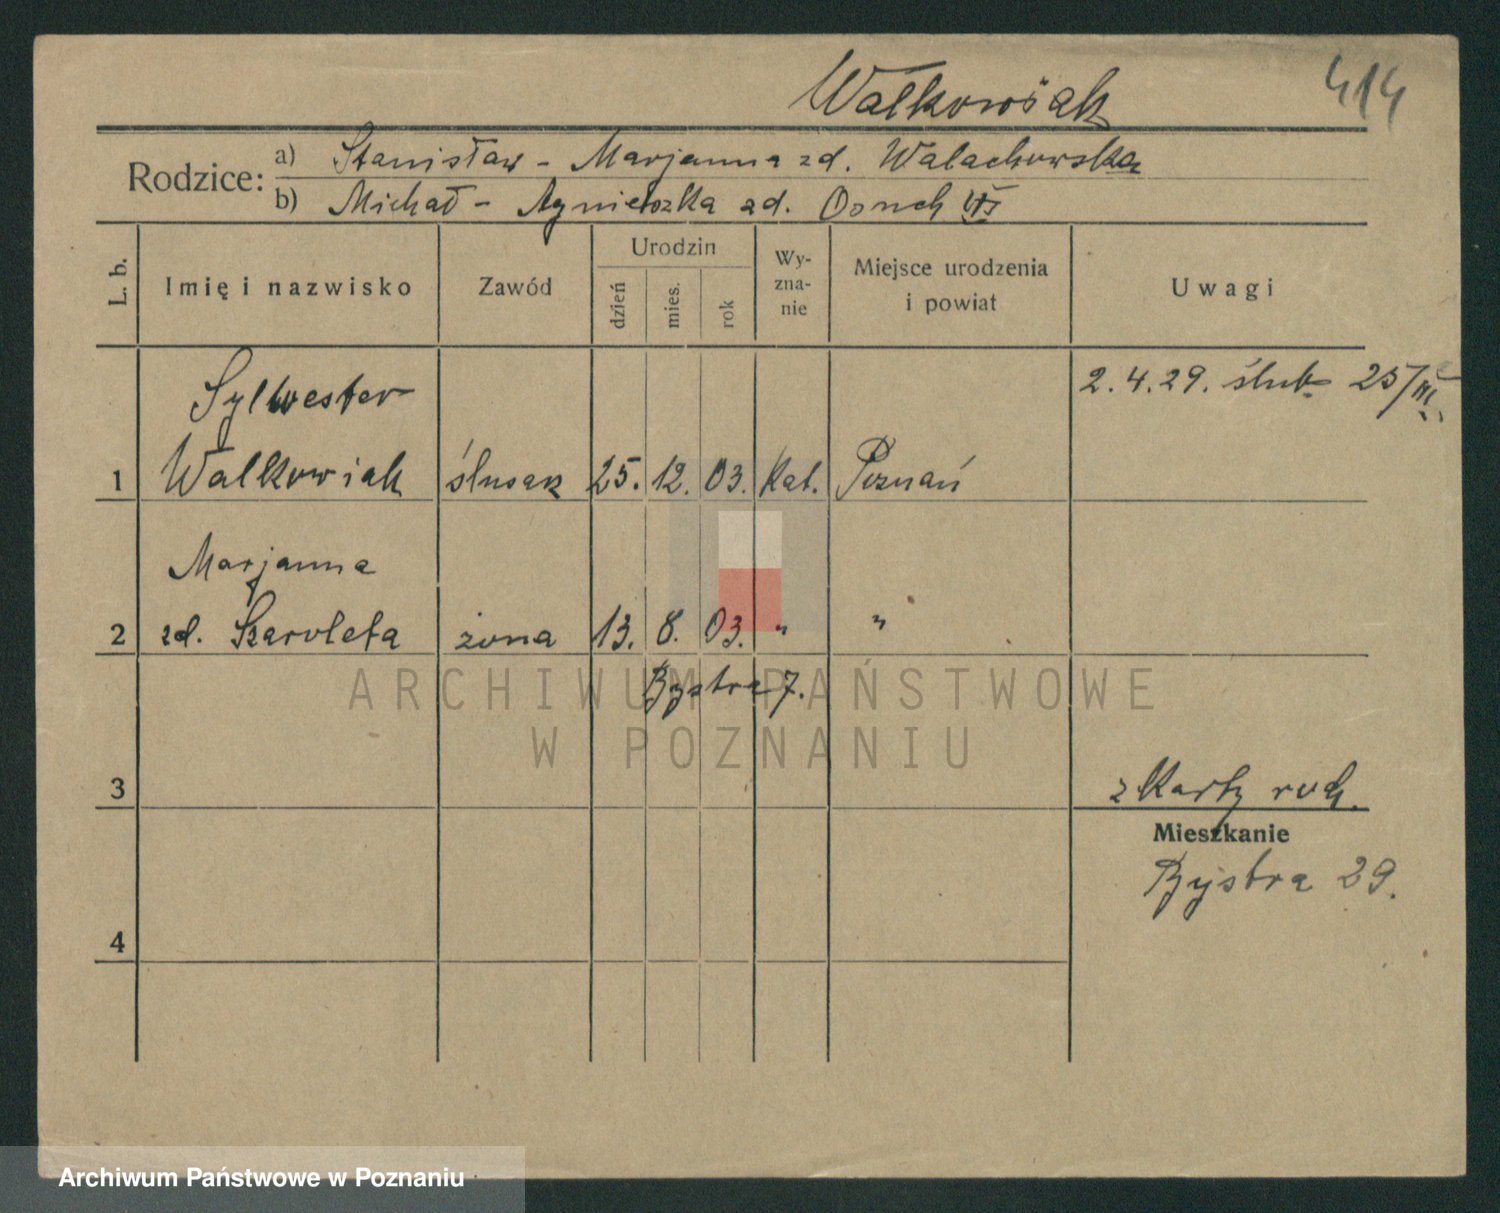 Walkowiak 414
Rodzice: a) Stanisław - Marjanna zd. Walachowska
b) Michał - Agnieszka zd.
L. b. Imię i nazwisko Zawód Urodzin dzień mies. rok Wy-zna-nie Miejsce urodzenia i powiat Uwagi
Sylwester 2.4.29. ślub 25/III.
1 Walkowiak ślusarz 25. 12. 03. kat. Poznań
Marjanna
2 zd. Szaroleta żona 13. 8. 03. " "
Bystra 7.
ARCHIWUM PAŃSTWOWE
W POZNANIU
3 z karty ruch.
Mieszkanie
Bystra 29.
4
Archiwum Państwowe w Poznaniu